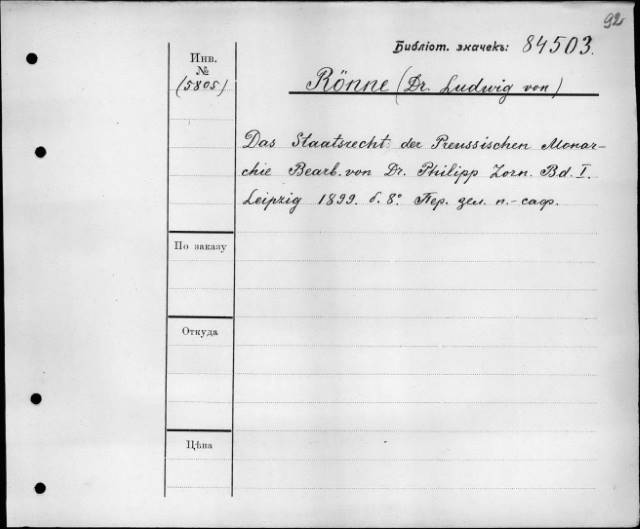 92
Библіот. значекъ: 84503.
Инв.
№
(5805)
Rönne (Dr. Ludwig von)
Das Staatsrecht der Preussischen Monar-
chie Bearb. von Dr. Philipp Zorn. Bd. I.
Leipzig 1899. б. 8º. Пер. зел. п.-саф.
По заказу
Откуда
Цѣна